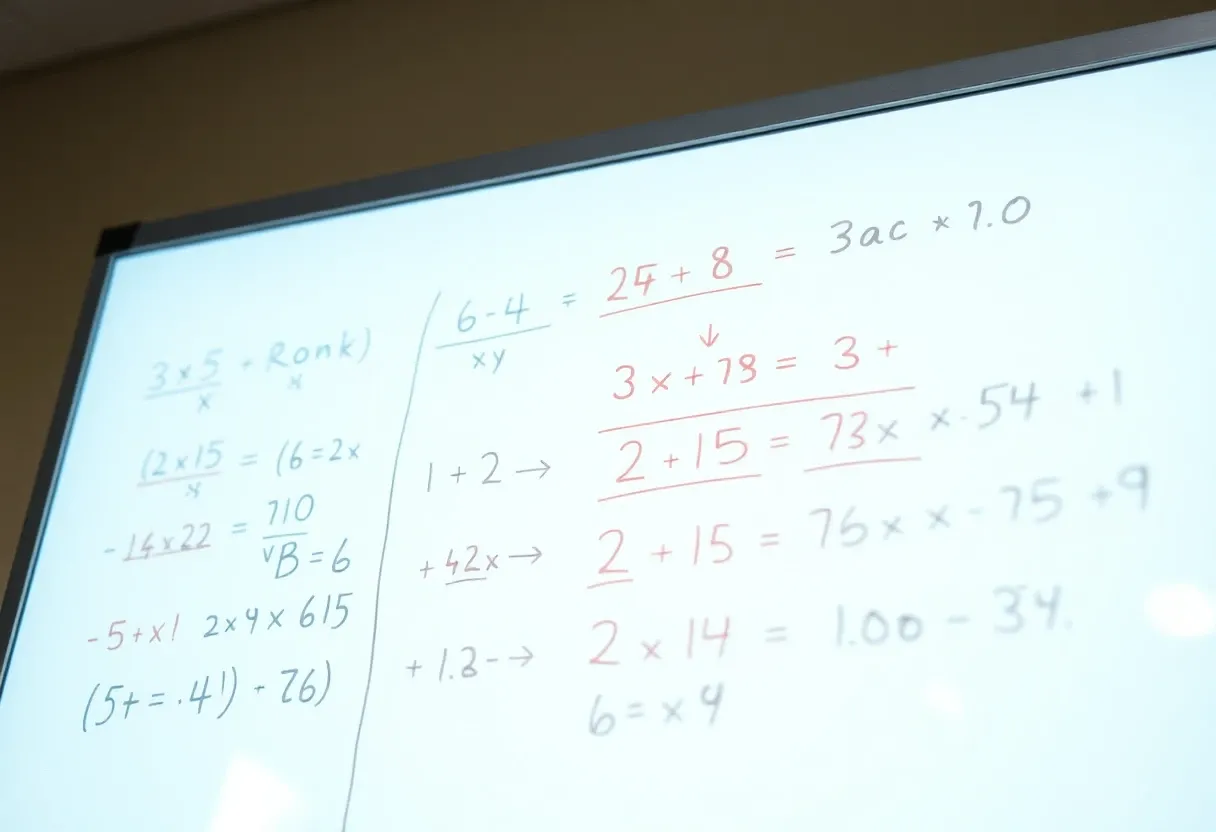 3 x 5 + Ronk)
x x
(2 x 15 = (6 = 2x
x
- 14 x 22 = 710
√B = 6
- 5 + x! 2 x 4 x 615
(5+ = .4!) - 76)
6 - 4 = 24 + 8 = 3ac * 7.0
xy
↓
3 x + 78 = 3 +
1 + 2 → 2 + 15 = 73x x . 54 + 1
+ 42x → 2 + 15 = 76x x - 75 + 9
+ 1.3 - → 2 x 14 = 1.00 - 34.
6 = x 4